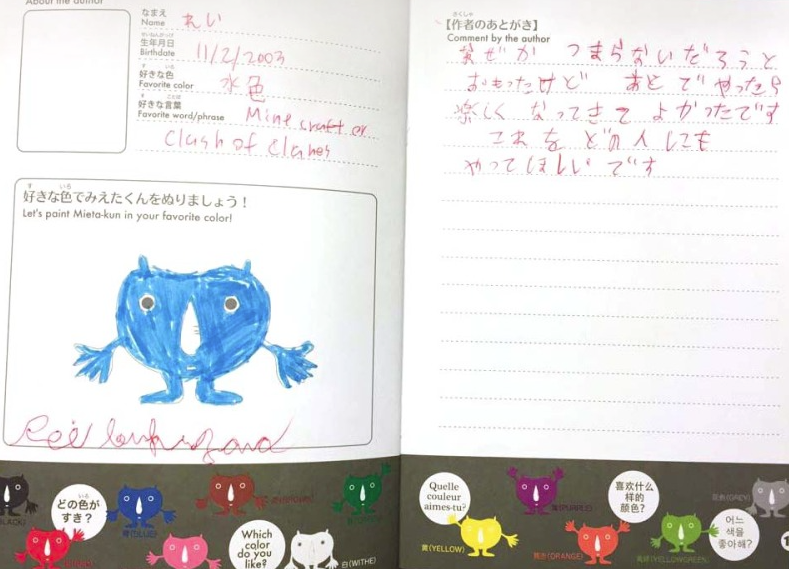 About the author
なまえ
Name れい
せいねんがっぴ
生年月日
Birthdate 11/2/2003
す いろ
好きな色
Favorite color 水色
す ことば
好きな言葉
Favorite word/phrase Minecraft or
Clash of Clanes
す いろ
好きな色でみえたくんをぬりましょう！
Let's paint Mieta-kun in your favorite color!
Rei
いろ
どの色が
すき？
青(BLUE)
Which
color do
you
like?
白(WITHE)
さくしゃ
【作者のあとがき】
Comment by the author
なぜか つまらないだろうと
おもったけど あとでやったら
楽しくなってきてよかったです
これをどの人にも
やってほしいです
Quelle
couleur
aimes-tu?
黄(YELLOW)
紫(PURPLE)
(ORANGE)
喜欢什么
样的
颜色?
黄緑(YELLOWGREEN)
(GREY)
어느
색을
좋아해?